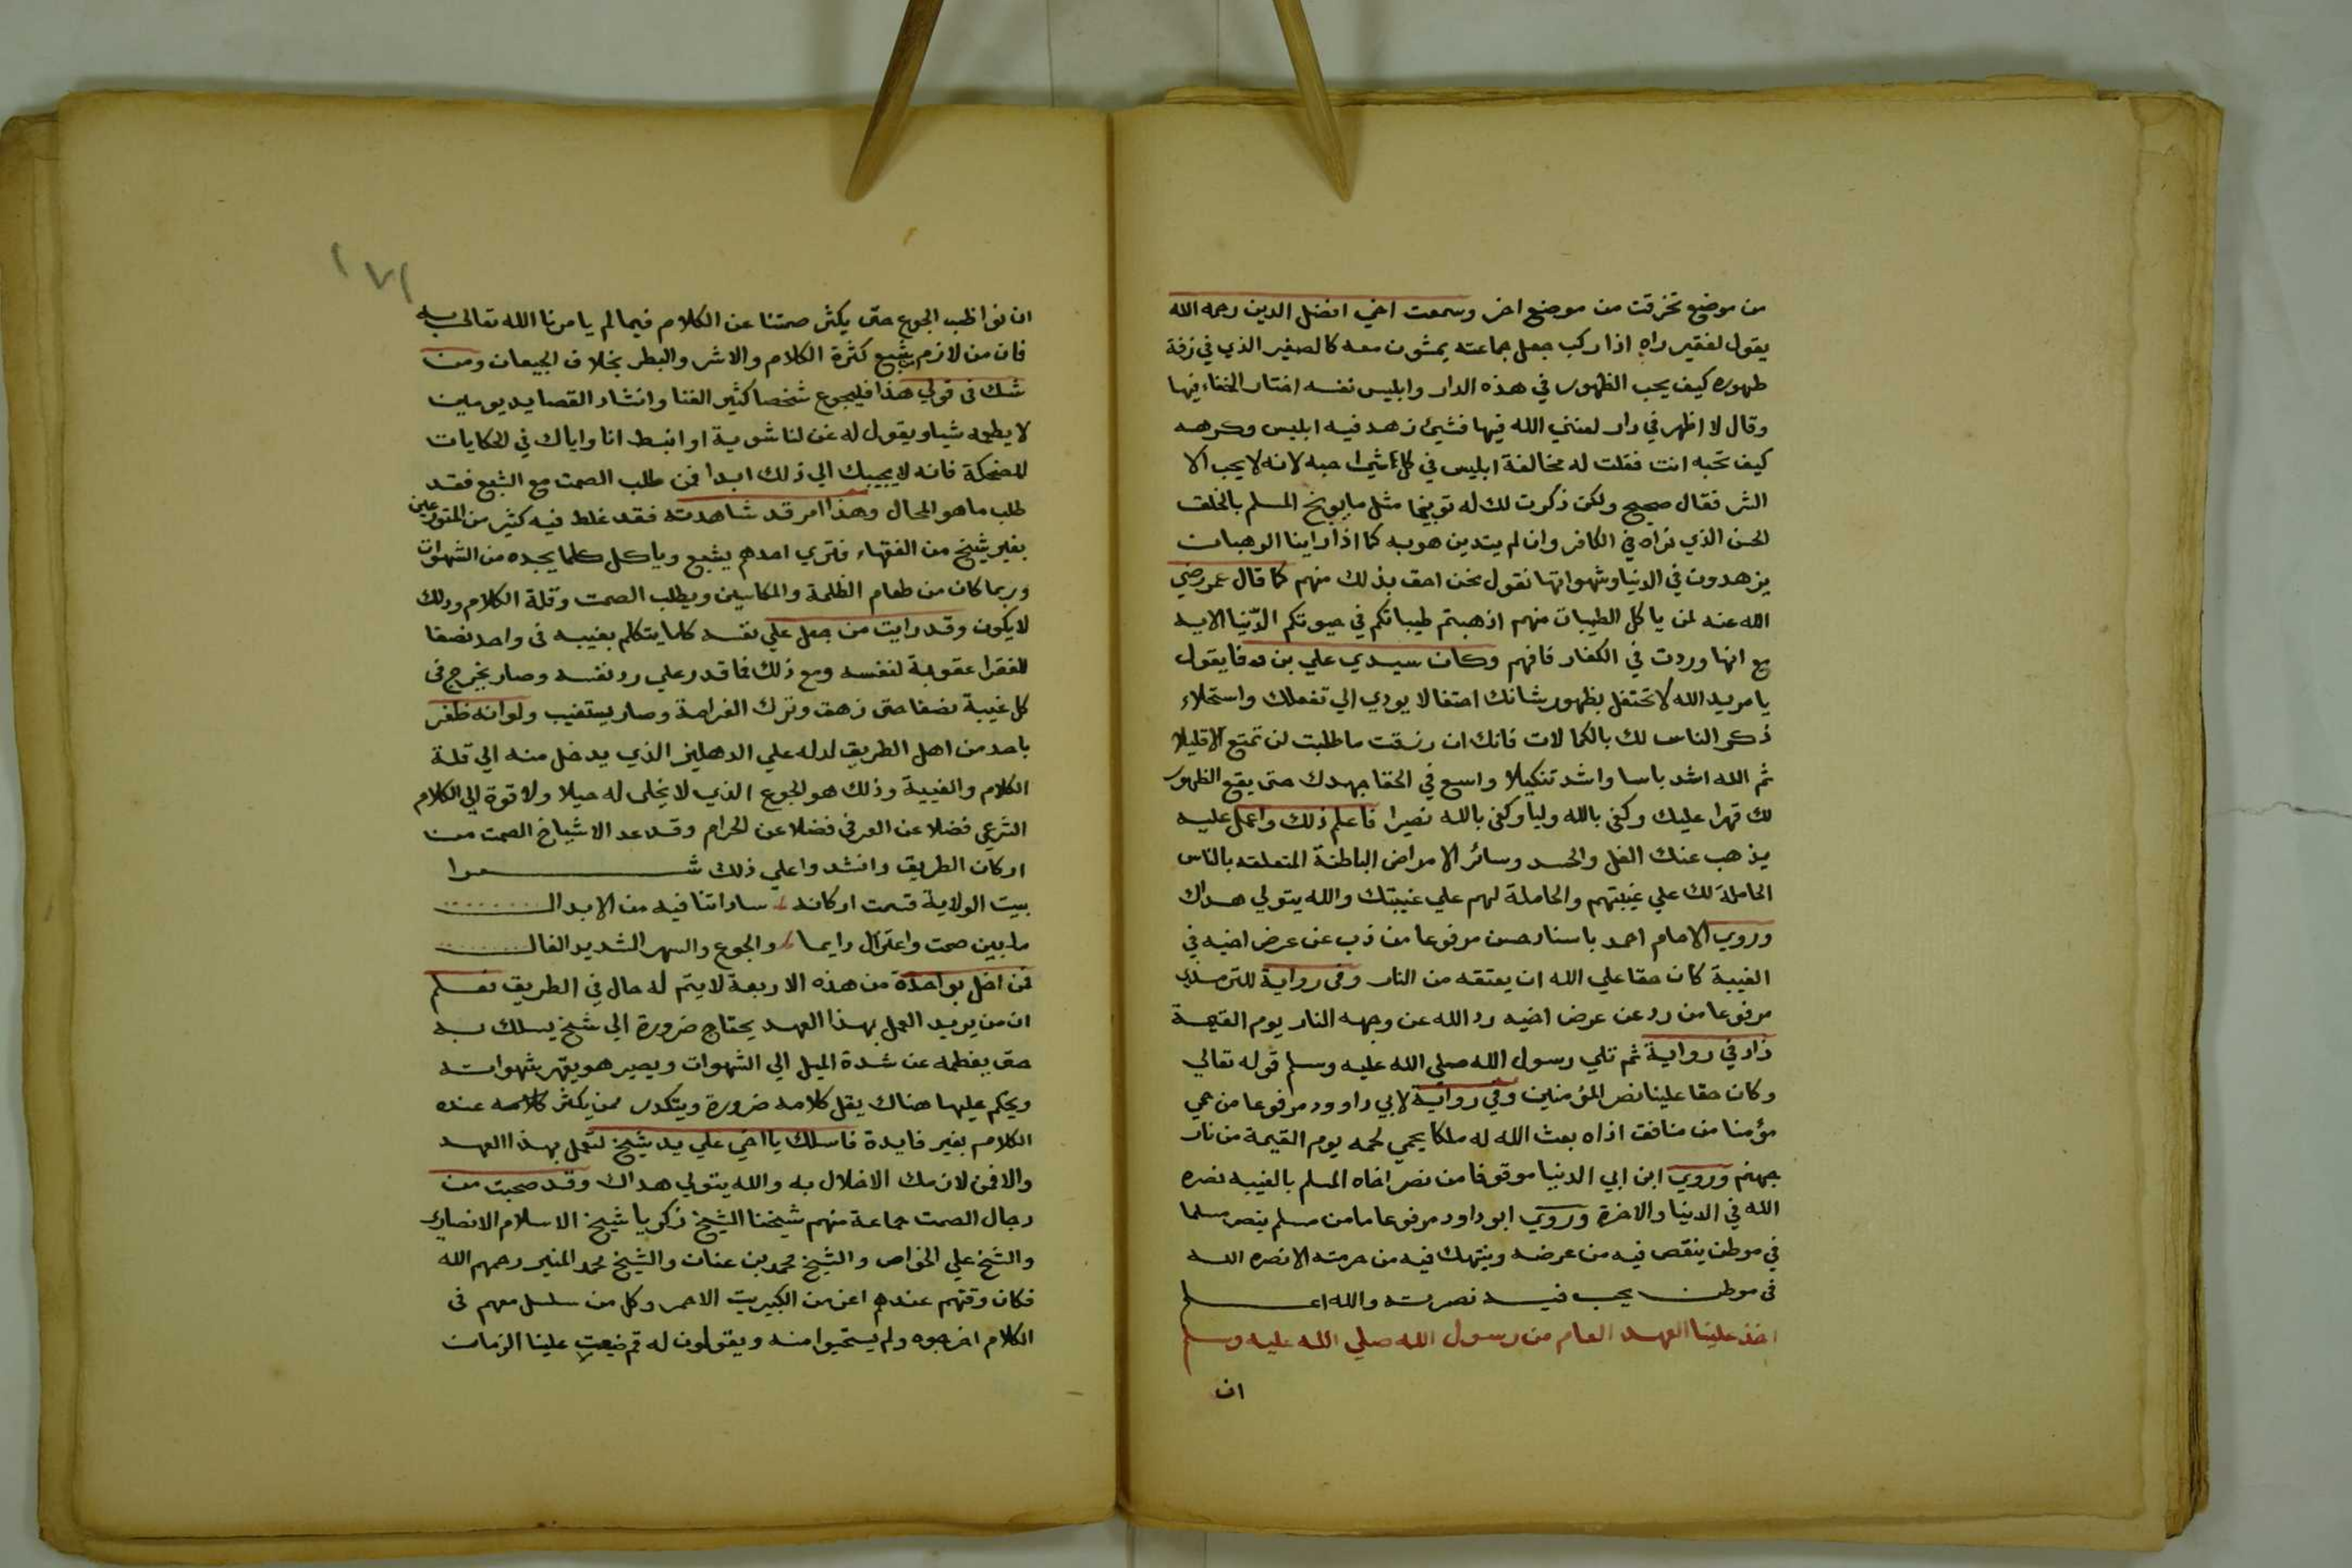 من موضع تخرقت من موضع اخر وسمعت اخي افضل الدين رحمه الله
يقول لفقير راه اذا ركب جعل جماعته يمشون معه كالصغير الذي في زفة
طهوره كيف يحب الظهور في هذه الدار وابليس نفسه اختار الخفاء فيها
وقال لا اظهر في دار لعنني الله فيها فشيئ زهد فيه ابليس وكرهه
كيف تحبه انت فقلت له مخالفة ابليس في كل حبه لانه لا يحب الا
الشر فقال صحيح ولكن ذكرت لك له توبيخا مثل ما يوبخ المسلم بالخلق
الحسن الذي نراه في الكافر وان لم يتدين هو به كما اذا راينا الرهبان
يزهدون في الدنيا وشهواتها نقول نحن احق بذلك منهم كما قال عمر رضي
الله عنه لمن ياكل الطيبات منهم اذهبتم طيباتكم في حيوتكم الدنيا الايه
مع انها وردت في الكفار فافهم وكان سيدي علي بن وفا يقول
يا مريد الله لا تحتفل بظهور شانك احتفالا يودي الي تفعلك واستحلاء
ذكر الناس لك بالكمالات فانك ان رزقت ما طلبت لن تمتع الا قليلا
ثم الله اشد باسا واشد تنكيلا واسع في الخفا جهدك حتى يقع الظهور
لك قهرا عليك وكفى بالله وليا وكفى بالله نصيرا فاعلم ذلك واعمل عليه
يذهب عنك الغل والحسد وسائر الامراض الباطنة المتعلقه بالناس
الحاملة لك علي غيبتهم والحاملة لهم علي غيبتك والله يتولي هداك
وروي الامام احمد باسناد حسن مرفوعا من ذب عن عرض اخيه في
الغيبة كان حقا علي الله ان يعتقه من النار وفي رواية للترمذي
مرفوعا من رد عن عرض اخيه رد الله عن وجهه النار يوم القيمة
زاد في رواية ثم تلي رسول الله صلي الله عليه وسلم قوله تعالي
وكان حقا علينا نصر المؤمنين وفي رواية لابي داوود مرفوعا من حمي
مؤمنا من منافق اذاه بعث الله له ملكا يحمي لحمه يوم القيمة من نار
جهنم وروي ابن ابي الدنيا موقوفا من نصر اخاه المسلم بالغيبه نصره
الله في الدنيا والاخرة وروي ابو داود مرفوعا ما من مسلم ينصر مسلما
في موطن ينقص فيه من عرضه وينتهك فيه من حرمته الا نصره الله
في موطن يحب فيه نصرته والله اعلم
اخذ علينا العهد العام من رسول الله صلي الله عليه وسلم
ان
١٧١
ان نواظب الجوع حتى يكثر صمتنا عن الكلام فيما لم يامرنا الله تعالى به
فان من لازم شبع كثرة الكلام والاشر والبطر بخلاف الجيعان ومن
شك في قولي هذا فليجوع شخصا كثير الغنا وانشاد القصايد يومين
لا يطعمه شيا ويقول له غن لنا شوية او انبسط انا واياك في الحكايات
المضحكة فانه لا يجيبك الي ذلك ابدا فمن طلب الصمت مع الشبع فقد
طلب ما هو المحال وهذا امر قد شاهدته فقد غلط فيه كثير من المتورعين
بغير شيخ من الفقهاء فتري احدهم يشبع وياكل كلما يجده من الشهوات
وربما كان من طعام الظلمة والمكاسين ويطلب الصمت وقلة الكلام وذلك
لا يكون وقد رايت من جعل علي نفسه كلما يتكلم بغيبه في واحد نصفا
للفقرا عقوبة لنفسه ومع ذلك فما قدر علي رد نفسه وصار يخرج في
كل غيبة نصفا حتى زهق وترك الغرامة وصار يستغيب ولو انه ظفر
باحد من اهل الطريق لدله علي الدهليز الذي يدخل منه الي قلة
الكلام والغيبة وذلك هو الجوع الذي لا يخلى له حيلا ولا قوة الي الكلام
الشرعي فضلا عن العرفي فضلا عن الحرام وقد عد الاشياخ الصمت من
اركان الطريق وانشدوا علي ذلك شعرا
بيت الولاية قسمت اركانه ساداتنا فيه من الابدال
ما بين صمت واعتزال دايما والجوع والسهر الشديد الغال
فمن اخل بواحدة من هذه الاربعة لا يتم له حال في الطريق فعلم
ان من يريد العمل بهذا العهد يحتاج ضرورة الي شيخ يسلك به
حتى يفطمه عن شدة الميل الي الشهوات ويصير هو يقهر شهواته
ويحكم عليها هناك يقل كلامه ضرورة ويتكدر ممن يكثر كلامه عنده
الكلام بغير فايدة فاسلك يا اخي علي يد شيخ لتعمل بهذا العهد
والا فمن لازمك الاخلال به والله يتولي هداك وقد صحبت من
رجال الصمت جماعة منهم شيخنا الشيخ زكريا شيخ الاسلام الانصاري
والشيخ علي الخواص والشيخ محمد بن عنان والشيخ محمد المنير رحمهم الله
فكان وقتهم عندهم اعز من الكبريت الاحمر وكل من سلسل معهم في
الكلام اخرجوه ولم يستحيوا منه ويقولون له قم ضيعت علينا الزمان